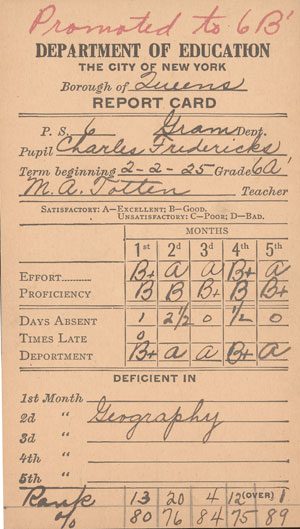 Promoted to 6B'
DEPARTMENT OF EDUCATION
THE CITY OF NEW YORK
Borough of Queens
REPORT CARD
P. S. 6 Gram Dept.
Pupil Charles Fredericks
Term beginning 2-2-25 Grade 6A'
M. A. Totten Teacher
SATISFACTORY: A—EXCELLENT; B—GOOD.
UNSATISFACTORY: C—POOR; D—BAD.
MONTHS
1st 2d 3d 4th 5th
EFFORT B+ A A B+ A
PROFICIENCY B B B+ B B+
DAYS ABSENT 1 2 1/2 0 1/2 0
TIMES LATE 0
DEPORTMENT B+ A A B+ A
DEFICIENT IN
1st Month
2d " Geography
3d "
4th "
5th "
(OVER)
Rank 13 20 4 12 1
% 80 76 84 75 89